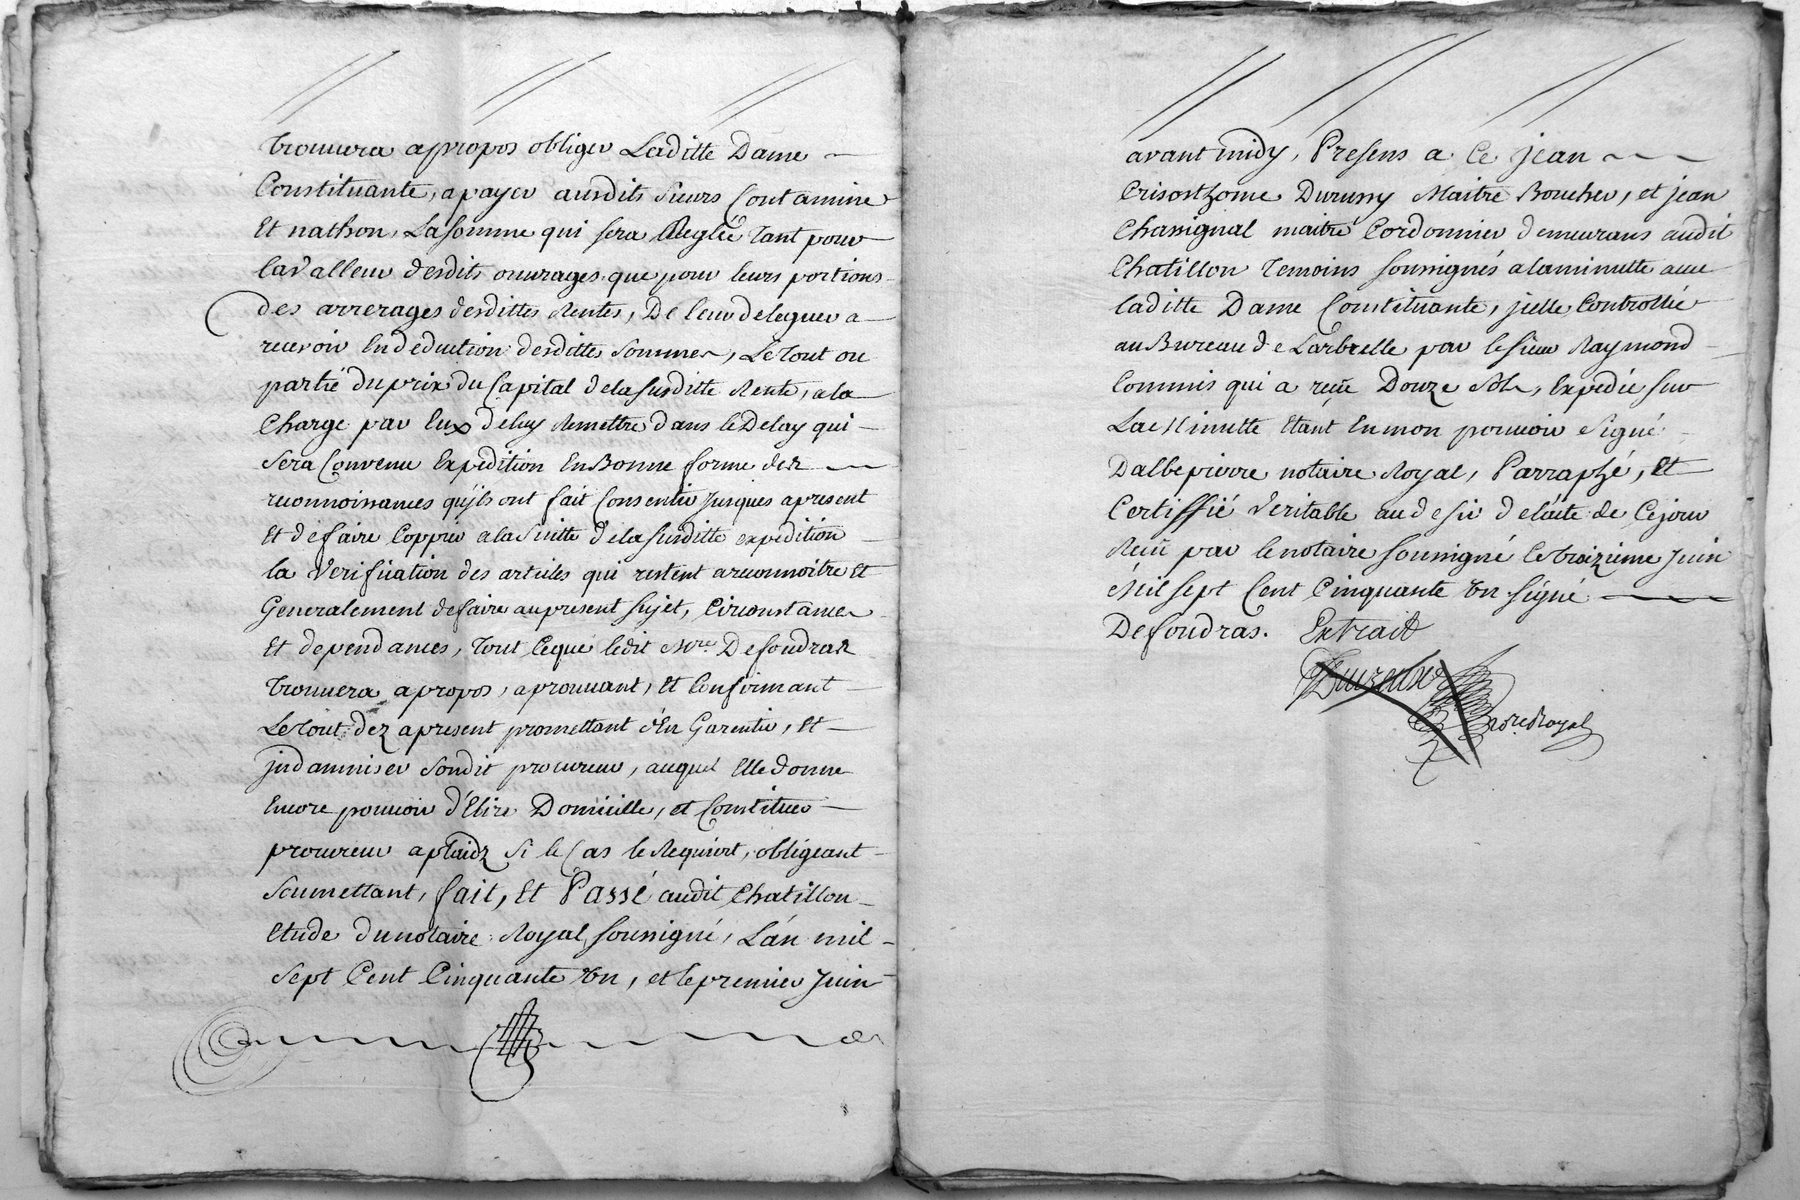 trouvera apropos obliger Laditte Dame
Constituante, apayer ausdits sieurs Contamine
Et nathon, La somme qui sera Reglée Tant pour
la valleur desdits ouvrages que pour leurs portions
des arrerages desdittes Rentes, De leur deleguer a
recevoir En deduction desdittes sommes, Le Tout ou
partie du prix du Capital dela susditte Rente, ala
Charge par Eux deluy Remettre dans le Delay qui
sera Convenu Expedition En Bonne forme des
reconnoissances quils ont fait Consentir jusques apresent
Et de faire Coppier ala suitte dela susditte expedition
la verification des articles qui restent areconnoitre Et
Generalement defaire aupresent sujet, Circonstances
Et dependances, Tout Ceque ledit Mre. Defoudras
trouvera apropos, aprouvant, Et Confirmant
Le Tout dez apresent promettant d'En Garentir, Et
jndamniser sondit procureur, auquel Elle donne
Encore pouvoir d'Elire Domicille, et Constituer
procureur aplaidz si le Cas le Requiert, obligeant
soumettant, fait, Et Passé audit Chatillon
Etude dunotaire Royal soussigné, L'an mil
sept Cent Cinquante un, et le premier Juin
avant midy, Presens a Ce jean
Crisosthome Durussy Maitre Boucher, et jean
Chassignal maitre Cordonnier demeurans audit
Chatillon Temoins soussignés alaminutte avec
laditte Dame Constituante, jcelle Controllée
au Bureau de Larbrelle par le sieur Raymond
Commis qui a reçu Douze sols, Expediée sur
La Minutte Etant En mon pouvoir signé
Dalbepierre notaire Royal, Parraphé, Et
Certiffié Veritable au desir de l'acte de Cejour
Reçu par le notaire soussigné le troizieme Juin
Mil sept Cent Cinquante un signé
Defoudras. Extrait
nore Royal